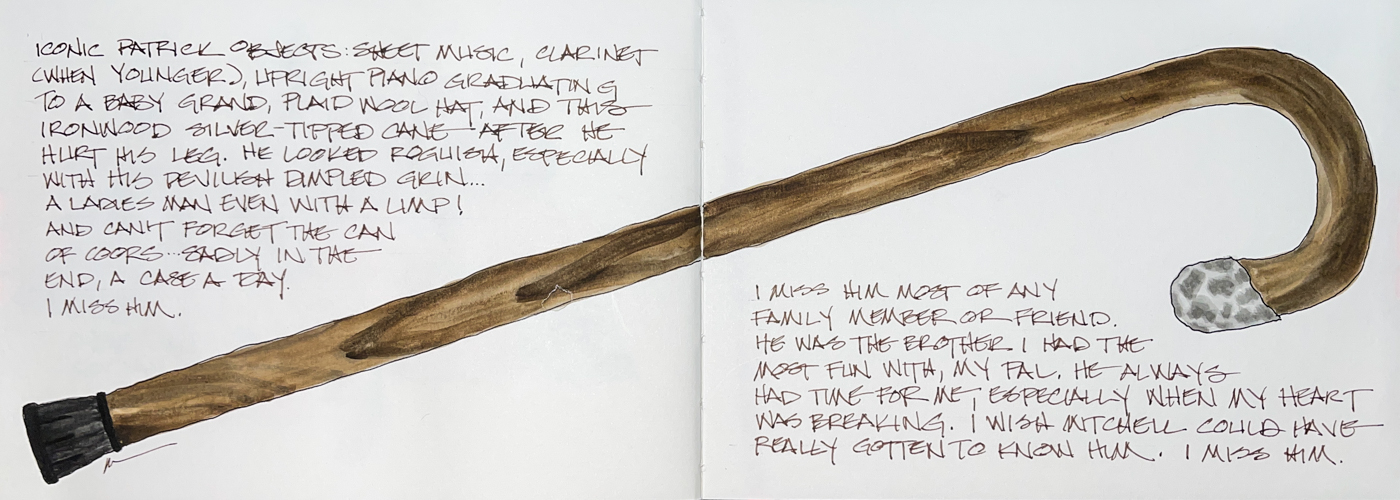 ICONIC PATRICK OBJECTS: SHEET MUSIC, CLARINET
(WHEN YOUNGER), UPRIGHT PIANO GRADUATING
TO A BABY GRAND, PLAID WOOL HAT, AND THIS
IRONWOOD SILVER-TIPPED CANE AFTER HE
HURT HIS LEG. HE LOOKED ROGUISH, ESPECIALLY
WITH HIS DEVILISH DIMPLED GRIN...
A LADIES MAN EVEN WITH A LIMP!
AND CAN'T FORGET THE CAN
OF COORS...SADLY IN THE
END, A CASE A DAY.
I MISS HIM.
I MISS HIM MOST OF ANY
FAMILY MEMBER OR FRIEND.
HE WAS THE BROTHER I HAD THE
MOST FUN WITH, MY PAL. HE ALWAYS
HAD TIME FOR ME, ESPECIALLY WHEN MY HEART
WAS BREAKING. I WISH MITCHELL COULD HAVE
REALLY GOTTEN TO KNOW HIM. I MISS HIM.